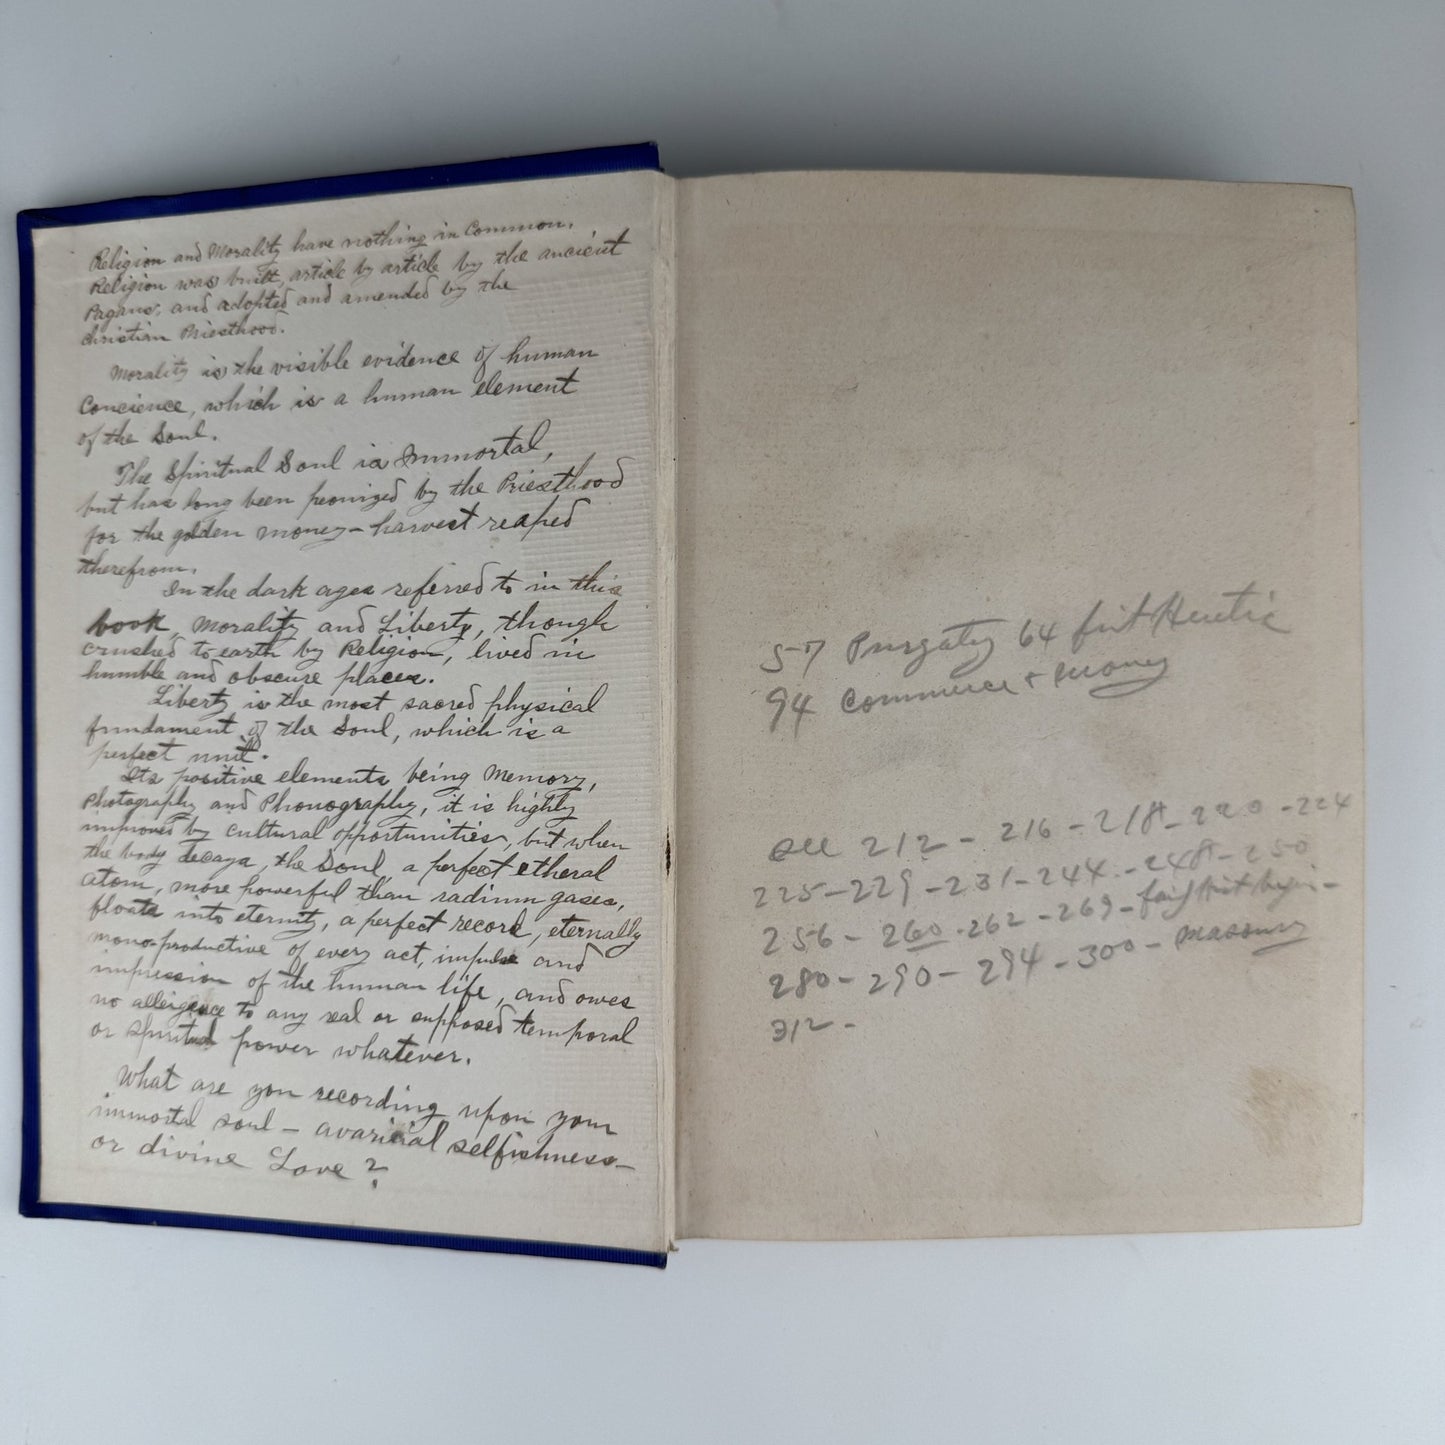 Religion and Morality have nothing in Common.
Religion was built, article by article by the ancient
Pagans, and adopted and amended by the
Christian Priesthood.
Morality is the visible evidence of human
Concience, which is a human element
of the Soul.
The Spiritual Soul is Immortal,
but has long been peonized by the Priesthood
for the golden money-harvest reaped
therefrom.
In the dark ages referred to in this
book, Morality and Liberty, though
crushed to earth by Religion, lived in
humble and obscure places.
Liberty is the most sacred physical
fundament of the Soul, which is a
perfect unit.
Its positive elements being Memory,
Photography and Phonography, it is highly
improved by cultural opportunities, but when
the body decays, the Soul, a perfect etheral
atom, more powerful than radium gases,
floats into eternity, a perfect record, eternally
mono-productive of every act, impulse and
impression of the human life, and owes
no allegience to any real or supposed temporal
or spiritual power whatever.
What are you recording upon your
immortal soul - avaricial selfishness -
or divine Love?
57 Purgaty 64 first Heretic
94 Commerce + Money
See 212 - 216 - 218 - 220 - 224
225 - 229 - 231 - 244 - 248 - 250
256 - 260 - 262 - 269 -
280 - 290 - 294 - 300 - Masonry
312 -